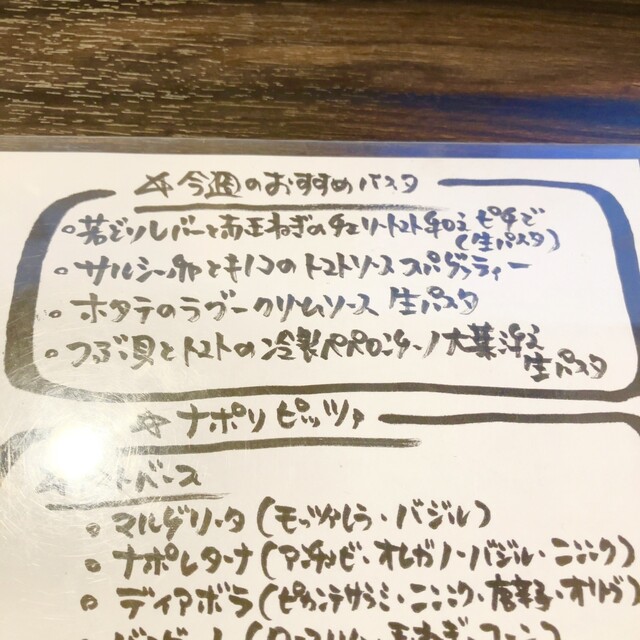 ☆今週のおすすめパスタ
・若どりレバーと赤玉ねぎのチェリートマト和え ピチで
(生パスタ)
・サルシッチャとキノコのトマトソース スパゲッティー
・ホタテのラグークリームソース 生パスタ
・つぶ貝とトマトの冷製ペペロンチーノ 大葉添え
生パスタ
☆ナポリピッツァ
トマトベース
・マルゲリータ(モッツァレラ・バジル)
・ナポレターナ(アンチョビ・オレガノ・バジル・ニンニク)
・ディアボラ(ピカンテサラミ・ニンニク・唐辛子・オレガノ